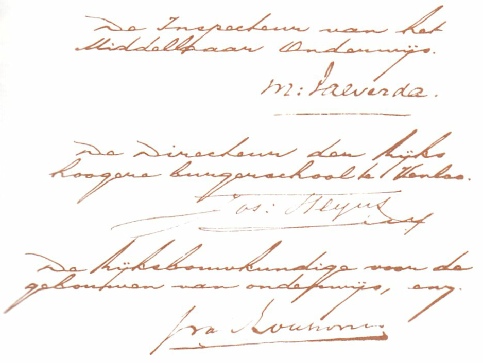 De Inspecteur van het
Middelbaar Onderwijs.
M: Salverda.
De Directeur der Rijks
hoogere burgerschool te Venloo.
Jos: Heijus
De Rijksbouwkundige voor de
gebouwen van onderwijs, enz.